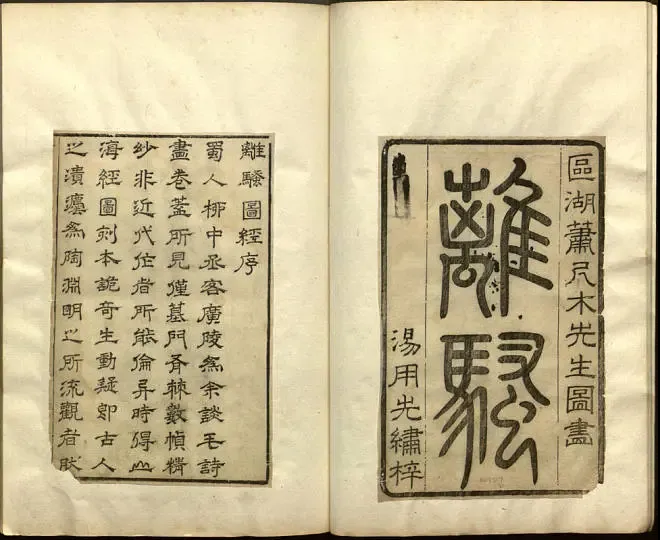 區湖蕭尺木先生圖畫
離騷
湯用先繡梓
離騷圖經序
蜀人柳中丞客廣陵為余談毛詩
畫卷蓋所見僅墓門斧棘數幀精
紗非近代作者所能倫异時得山
海經圖刻本詭奇生動疑即古人
之漬瀋為陶淵明之所流觀者肰